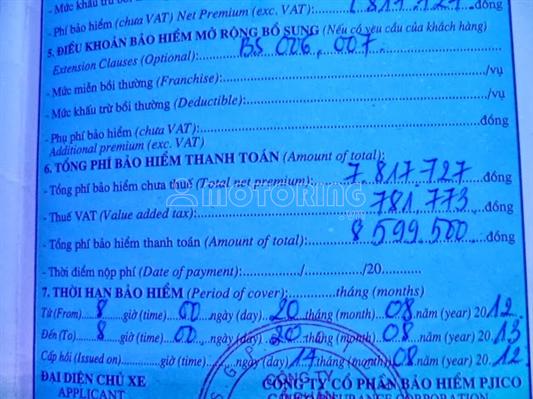 - Mức khấu trừ bồi
- Phí bảo hiểm (chưa VAT) Net Premium (exc. VAT) 7.817.727 đồng
5. ĐIỀU KHOẢN BẢO HIỂM MỞ RỘNG BỔ SUNG (Nếu có yêu cầu của khách hàng)
Extension Clauses (Optional): BS 006, 007.
- Mức miễn bồi thường (Franchise): /vụ
- Mức khấu trừ bồi thường (Deductible): /vụ
- Phụ phí bảo hiểm (chưa VAT): đồng
Additional premium (exc. VAT)
6. TỔNG PHÍ BẢO HIỂM THANH TOÁN (Amount of total):
- Tổng phí bảo hiểm chưa thuế (Total net premium): 7 817 727 đồng
MOTORING
- Thuế VAT (Value added tax): 781.773 đồng
- Tổng phí bảo hiểm thanh toán (Amount of total): 8 599 500 đồng
- Thời điểm nộp phí (Date of payment): / /20
7. THỜI HẠN BẢO HIỂM (Period of cover): tháng (months)
Từ (From) 8 giờ (time) 00 ngày (day) 20 tháng (month) 08 năm (year) 2012.
Đến (To) 8 giờ (time) 00 ngày (day) 20 tháng (month) 08 năm (year) 2013
Cấp hồi (Issued on) giờ (time) ngày (day) 17 tháng (month) 08 năm (year) 2012.
ĐẠI DIỆN CHỦ XE CÔNG TY CỔ PHẦN BẢO HIỂM PJICO
APPLICANT INSURANCE CORPORATION
CÔNG TY